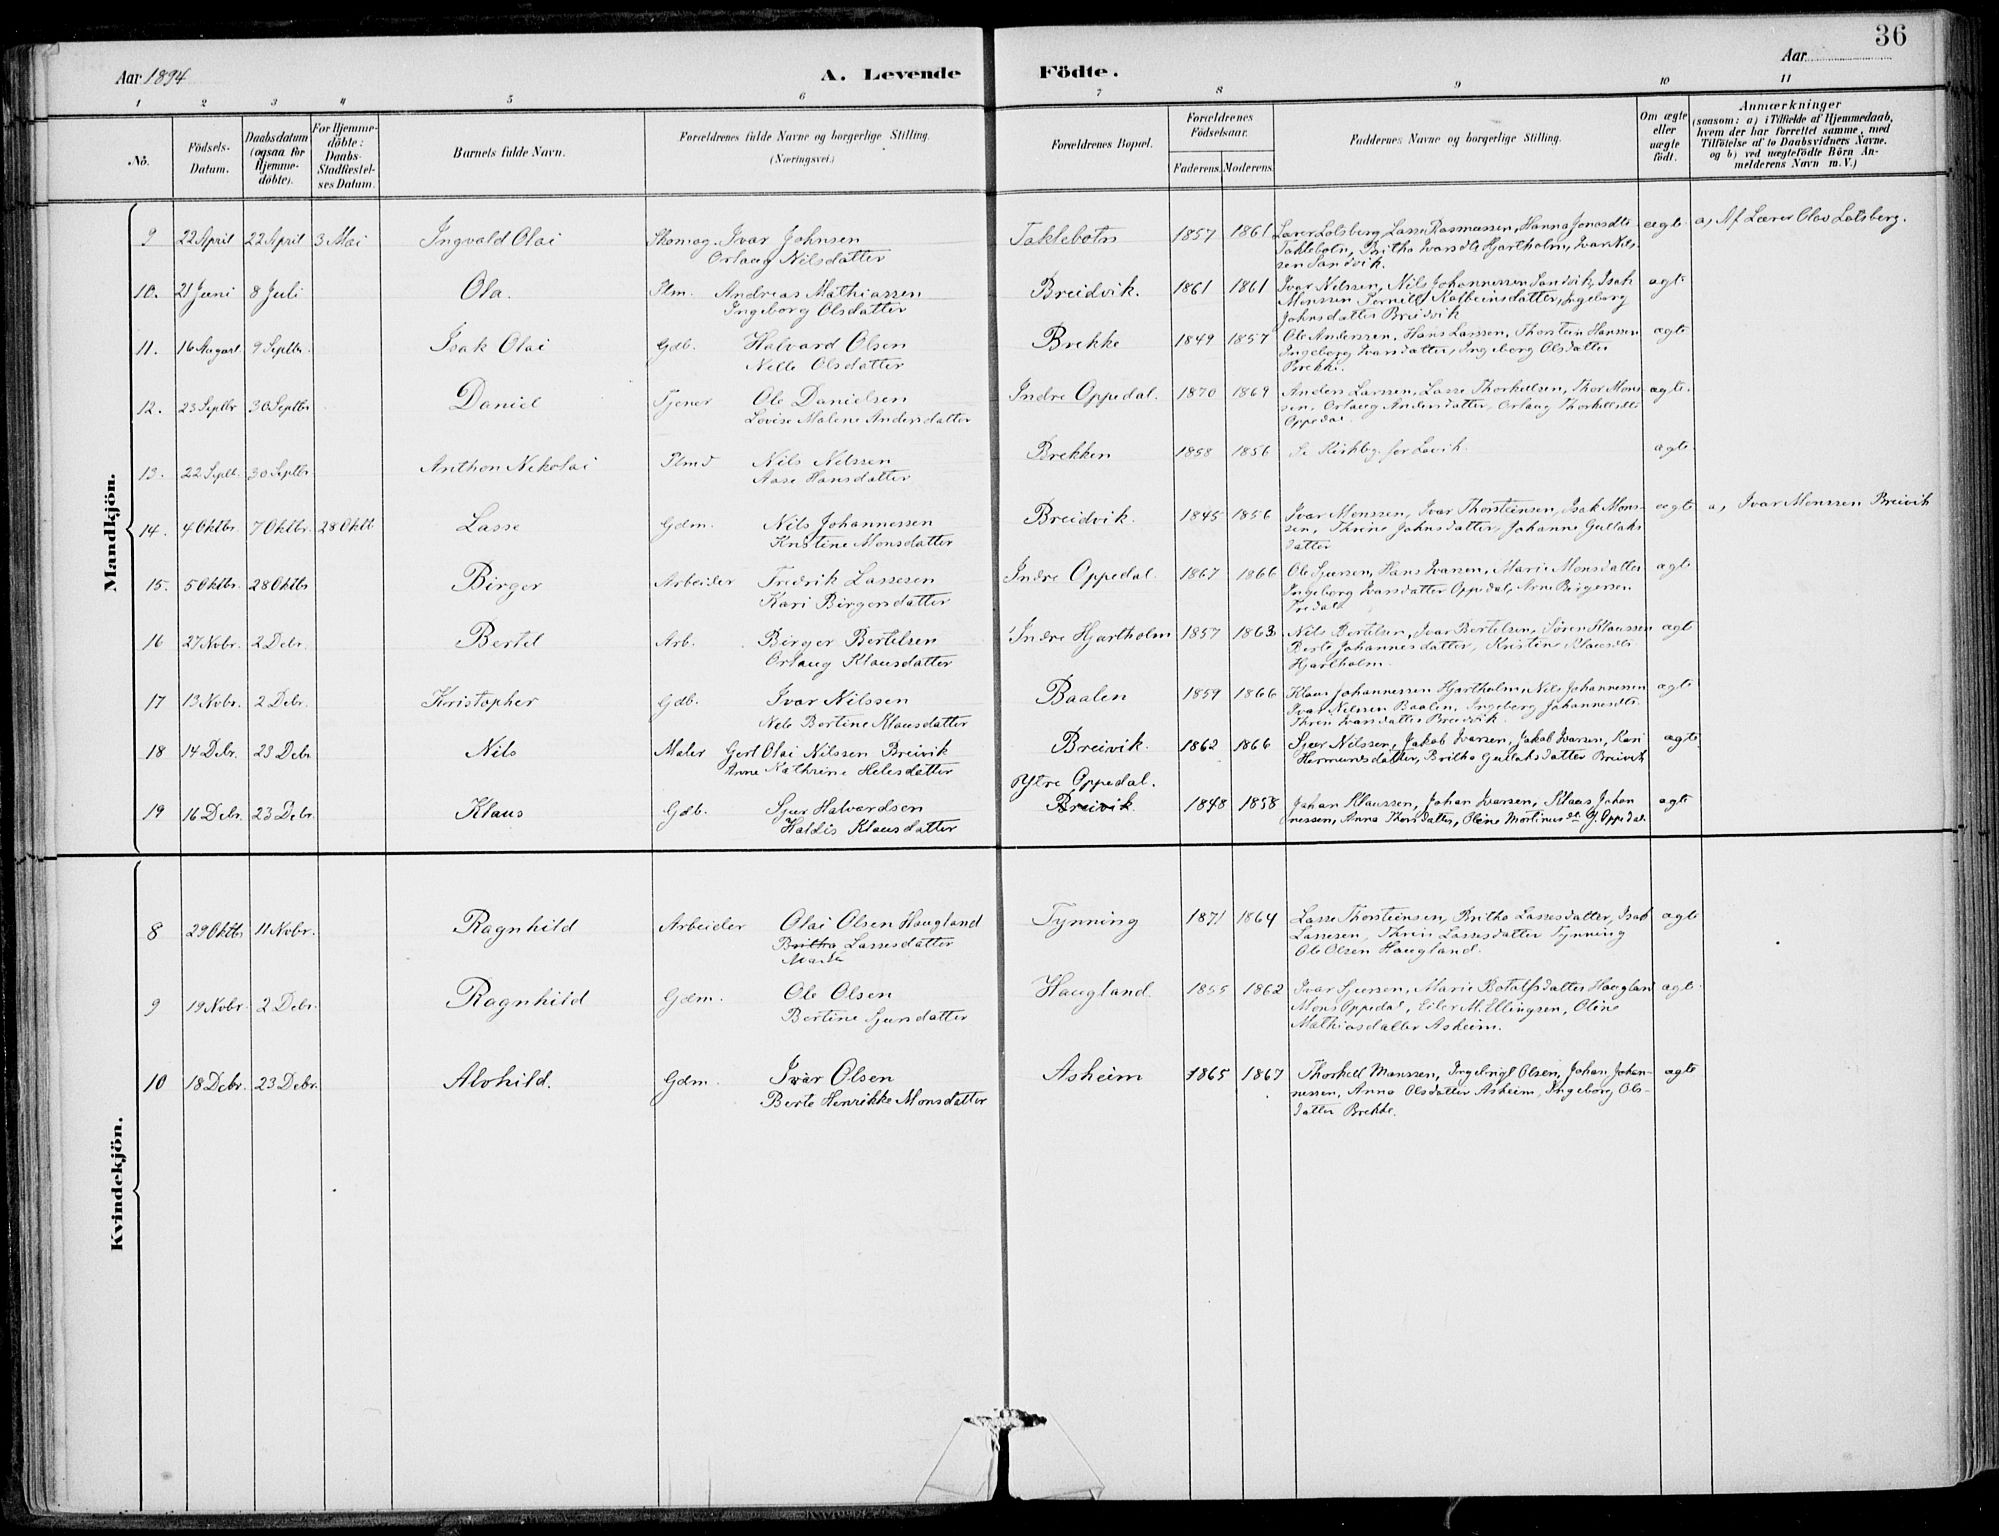 36
Aar 1894
A. Levende
Födte.
Aar
1 2 3 4 5 6 7 8 9 10 11
No.
Födsels-
Datum.
Daabsdatum
(ogsaa for
Hjemme-
döbte).
For Hjemme-
döbte:
Daabs-
Stadfæstel-
ses Datum.
Barnets fulde Navn.
Forældrenes fulde Navne og borgerlige Stilling.
(Næringsvei.)
Forældrenes Bopæl.
Forældrenes
Födselsaar.
Faderens. Moderens.
Faddernes Navne og borgerlige Stilling.
Om ægte
eller
uægte
födt.
Anmærkninger
(saasom: a) i Tilfælde af Hjemmedaab,
hvem der har forrettet samme, med
Tilföielse af to Daabsvidners Navne.
og b) ved uægtefödte Börn An-
melderens Navn m. V.)
Mandkjön.
9 22 April 22 April 3 Mai Ingvald Olai Skomag. Ivar Johnsen Taklebotn 1857 1861 Lærer Lotsberg, Lasse Rasmussen, Hanna Jonasdtr ægte a, Af Lærer Olav Lotsberg.
Orlaug Nilsdatter Taklebotn, Britha Ivarsdtr Hjartholm, Ivar Nils-
sen Sandvik.
10. 21 Juni 8 Juli Ola. Plm. Andreas Mathiassen Breidvik. 1861 1861 Ivar Nilssen, Nils Johannessen Sandvik, Isak ægte
Ingeborg Olsdatter Monssen, Pernille Kolbeinsdatter, Ingeborg
Johnsdatter Breidvik
11. 16 August 9 Septbr. Isak Olai Gdb. Halvard Olsen Brekke 1849 1857 Ole Anderssen, Hans Larssen, Thorstein Hanssen ægte
Nille Olsdatter Ingeborg Ivarsdatter, Ingeborg Olsdatter
Brekke.
12. 23 Septbr 30 Septbr Daniel Tjener Ole Danielsen Indre Oppedal. 1870 1869 Anders Larssen, Lasse Thorkelsen, Thor Mons- ægte.
Lovise Malene Andersdatter sen, Orlaug Andersdatter, Orlaug Thorkelsdtr
Oppedal
13. 22 Septb. 30 Septbr. Anthon Nikolai Plmd Nils Nilssen Brekken 1858 1856 Se Kirkbg. for Lavik. ægte.
Aase Hansdatter
14. 4 Oktbr. 7 Oktbr. 28 Oktb Lasse Gdm. Nils Johannessen Breidvik. 1845 1856 Ivar Monssen, Ivar Thorsteinsen, Isak Mons- ægte a, Ivar Monssen Breivik
Kristine Monsdatter sen, Thrine Johnsdatter, Johanne Gullaks
datter
15. 5 Oktbr. 28 Oktbr Birger Arbeider Fredrik Lassesen Indre Oppedal. 1867 1866 Ole Sjursen, Hans Ivarsen, Marie Monsdatter ægte
Kari Birgersdatter Ingeborg Ivarsdatter Oppedal, Arne Birgersen
Tredal
16 27 Novbr. 2 Debr. Bertel Arb. Birger Bertelsen Indre Hjartholm 1857 1863. Nils Bertelsen, Ivar Bertelsen, Sören Klaussen ægte
Orlaug Klausdatter Berte Johannesdatter, Kristine Klausdtr
Hjartholm.
17 13 Novbr. 2 Debr. Kristopher Gdb. Ivar Nilssen Baalen 1859 1866 Klaus Johannessen Hjartholm, Nils Johannessen ægte
Nels Bertine Klausdatter Ivar Nilssen Baalen, Ingeborg Johannesdtr
Thrin Ivarsdatter Breidvik.
18 14 Debr. 23 Debr Nils Maler Gert Olai Nilssen Breivik Breivik. 1862 1866 Sjur Nilssen, Jakob Ivarsen, Jakob Ivarsen, Kari ægte
Anne Kathrine Helesdatter Hermundsdatter, Britha Gullaksdatter Breivik
Ytre Oppedal.
19 16 Debr. 23 Debr Klaus Gdb. Sjur Halvardsen Breivik 1848 1858 Johan Klaussen, Johan Ivarsen, Klaus Johan ægte
Haldis Klausdatter nessen, Anna Thorsdatter, Oline Mortinusdt. Y. Oppedal
Kvindekjön.
8 29 Oktbr 11 Novbr. Ragnhild Arbeider Olai Olsen Haugland Tynning 1871 1864 Lasse Thorsteinsen, Britha Lassesdatter, Isak ægte
Britha Lassesdatter Lassesen, Thrin Lassesdatter Tynning
Marta Ole Olsen Haugland.
9 19 Novbr. 2 Debr. Ragnhild Gdm. Ole Olsen Haugland. 1855 1862 Ivar Sjursen, Marie Botolfsdatter Haugland ægte.
Bertine Sjursdatter Mons Oppedal, Eiler M. Ellingsen, Oline
Mathiasdatter Asheim.
10 18 Debr. 23 Debr. Alvhild. Gdm. Ivar Olsen Asheim 1865 1867 Thorkel Monssen, Ingebrigt Olsen, Johan Johan- ægte
Berte Henrikke Monsdatter nessen, Anna Olsdatter Asheim, Ingeborg Ols-
datter Brekke.